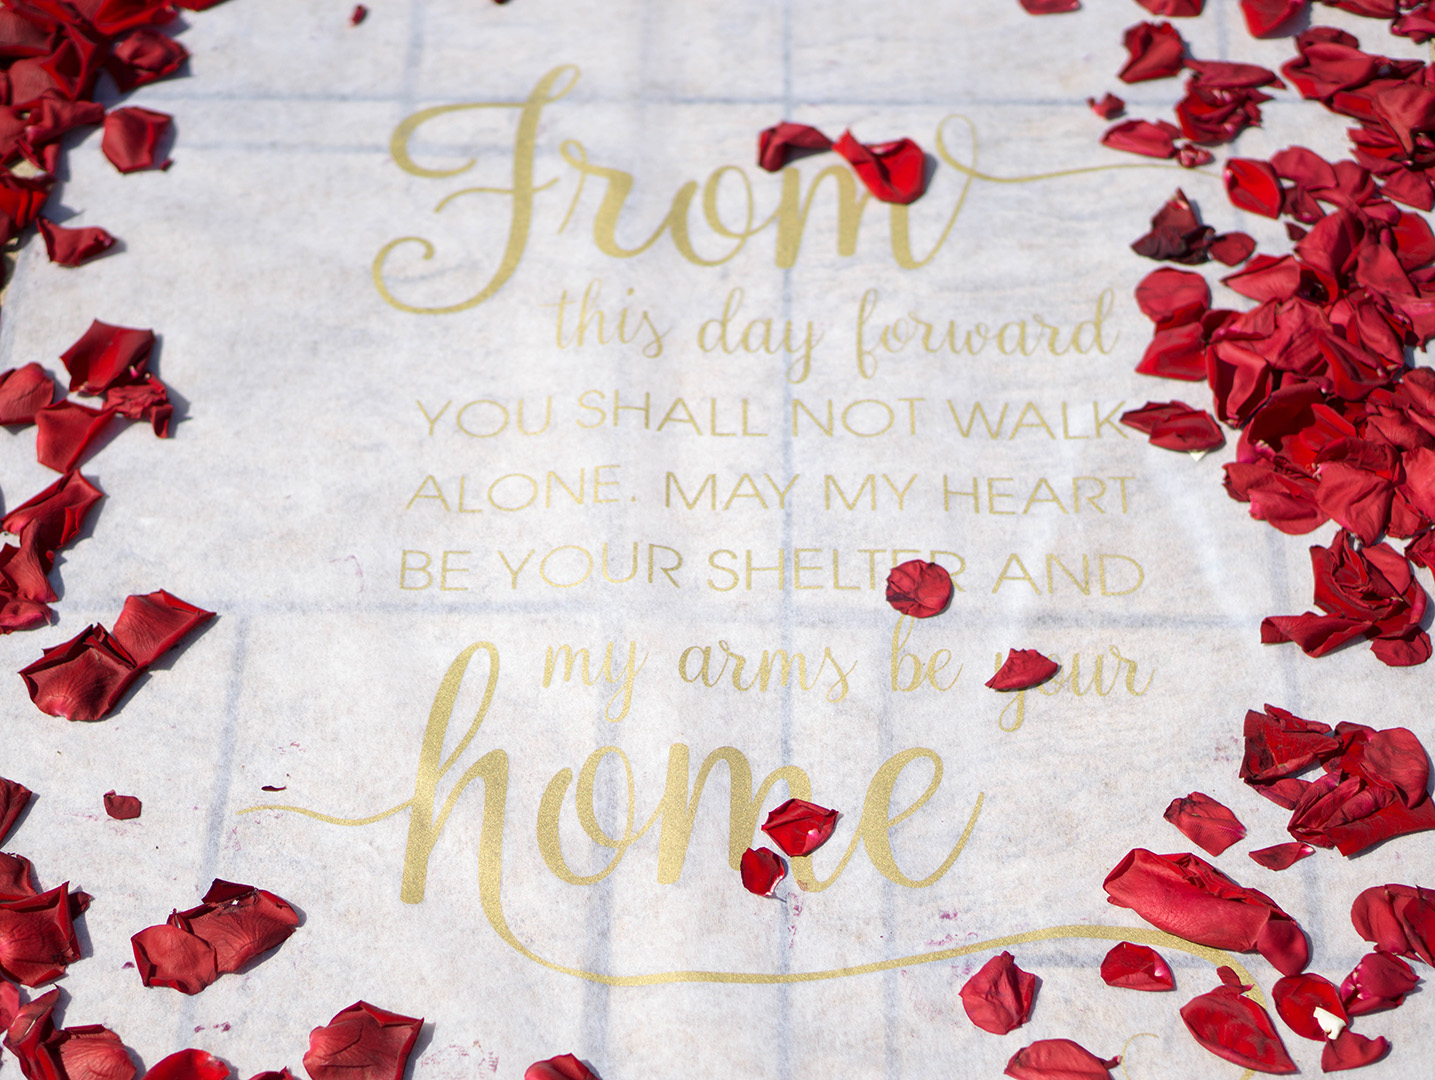 From
this day forward
YOU SHALL NOT WALK
ALONE. MAY MY HEART
BE YOUR SHELTER AND
my arms be your
home